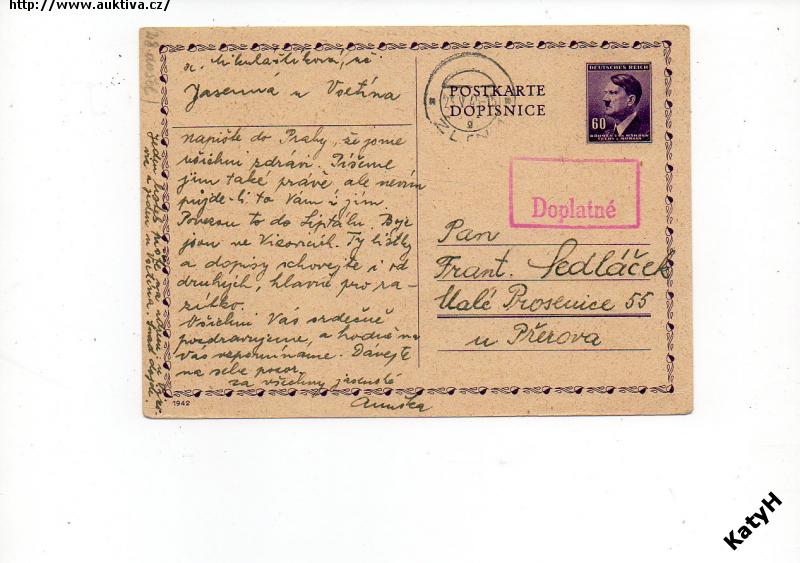 http://www.auktiva.cz/
A. Mikulaštíková, 
Jasenná u Vsetína
napište do Prahy, že jsme
všichni zdrávi. Píšeme
jim také právě ale nevím
půjde-li to Vám i jim.
Povezou to do Liptálu. Boje
jsou ve Vizovicích. Ty lístky
a dopisy schovejte i od
druhých, hlavně pro ra-
zítko.
Všichni Vás srdečně
pozdravujeme, a hodně na
vás vzpomínáme. Dávejte
na sebe pozor.
za všechny jasenské
Anuška
1942
POSTKARTE
DOPISNICE
ZLÍN 1
DEUTSCHES REICH
60
BÖHMEN U. MÄHREN
ČECHY A MORAVA
Doplatné
Pan
Frant. Sedláček
Malé Prosenice 55
u Přerova
KatyH